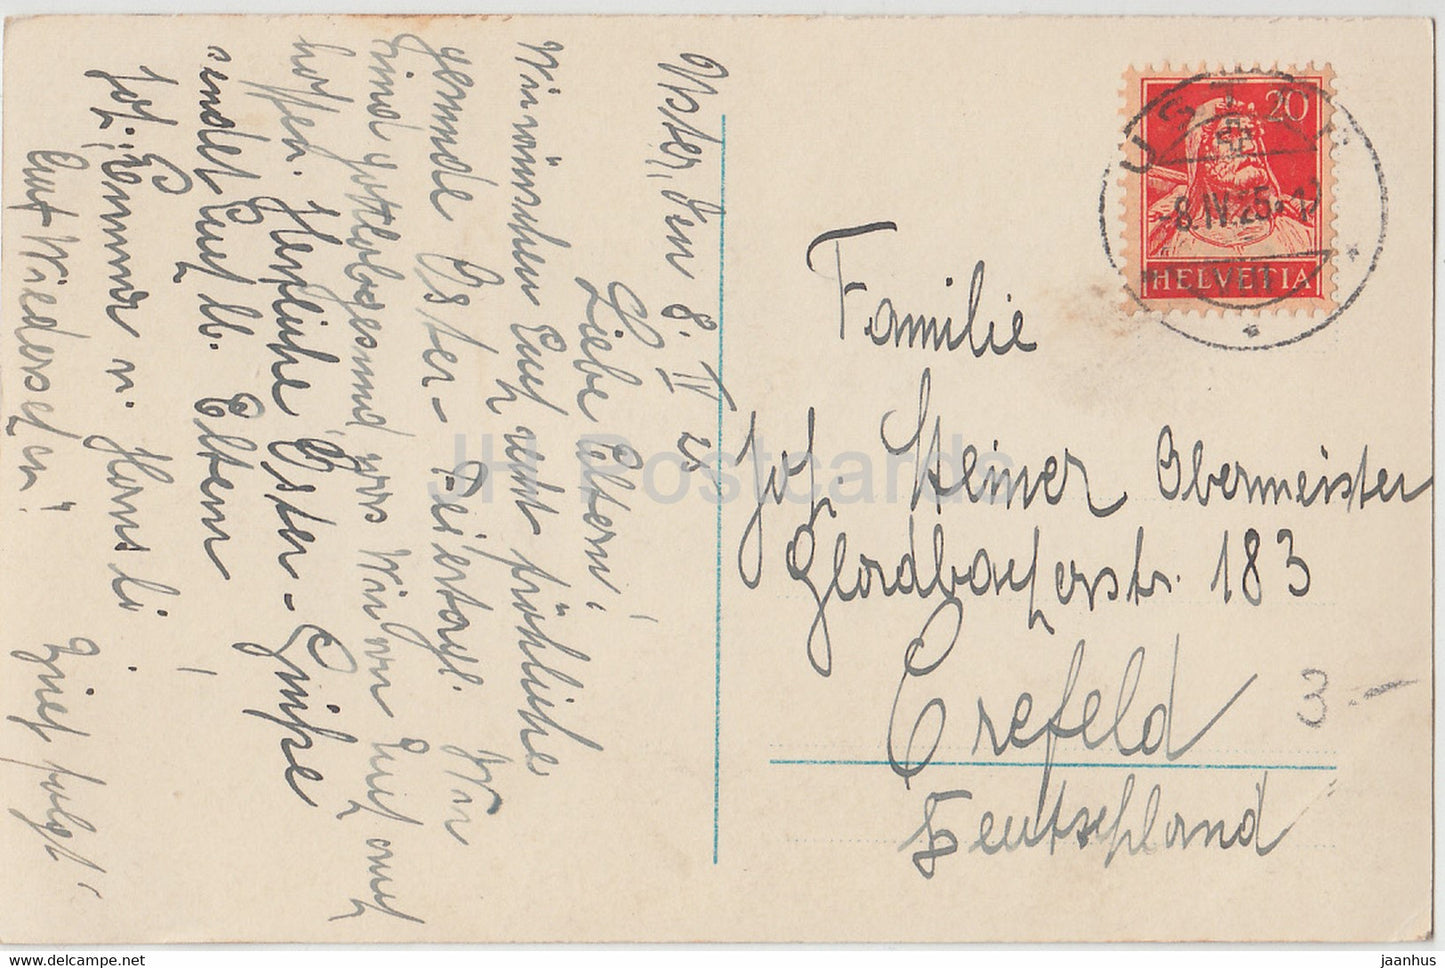 Uster, den 8. IV 25
Liebe Eltern!
Wir wünschen Euch recht fröhliche
gesunde Oster-Feiertage. Wir
sind gottlob gesund, was wir von Euch auch
hoffen. Herzliche Oster-Grüße
sendet Euch lb. Eltern!
Joh., Emma u. Hansli.
Auf Wiedersehen! Brief folgt.
20
HELVETIA
USTER
-8.IV.25.-17
Familie
Jos. Steiner Obermeister
Gladbacherstr. 183
Crefeld
Deutschland
3.-
JH Postcards
jaanhus